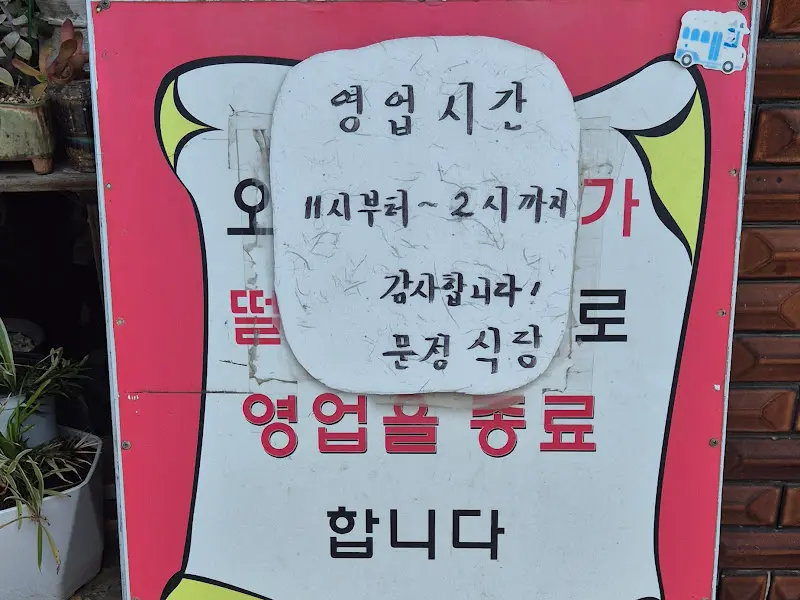 영업시간
11시부터~2시까지
감사합니다!
문정식당
오 가
떨 로
영업을 종료
합니다